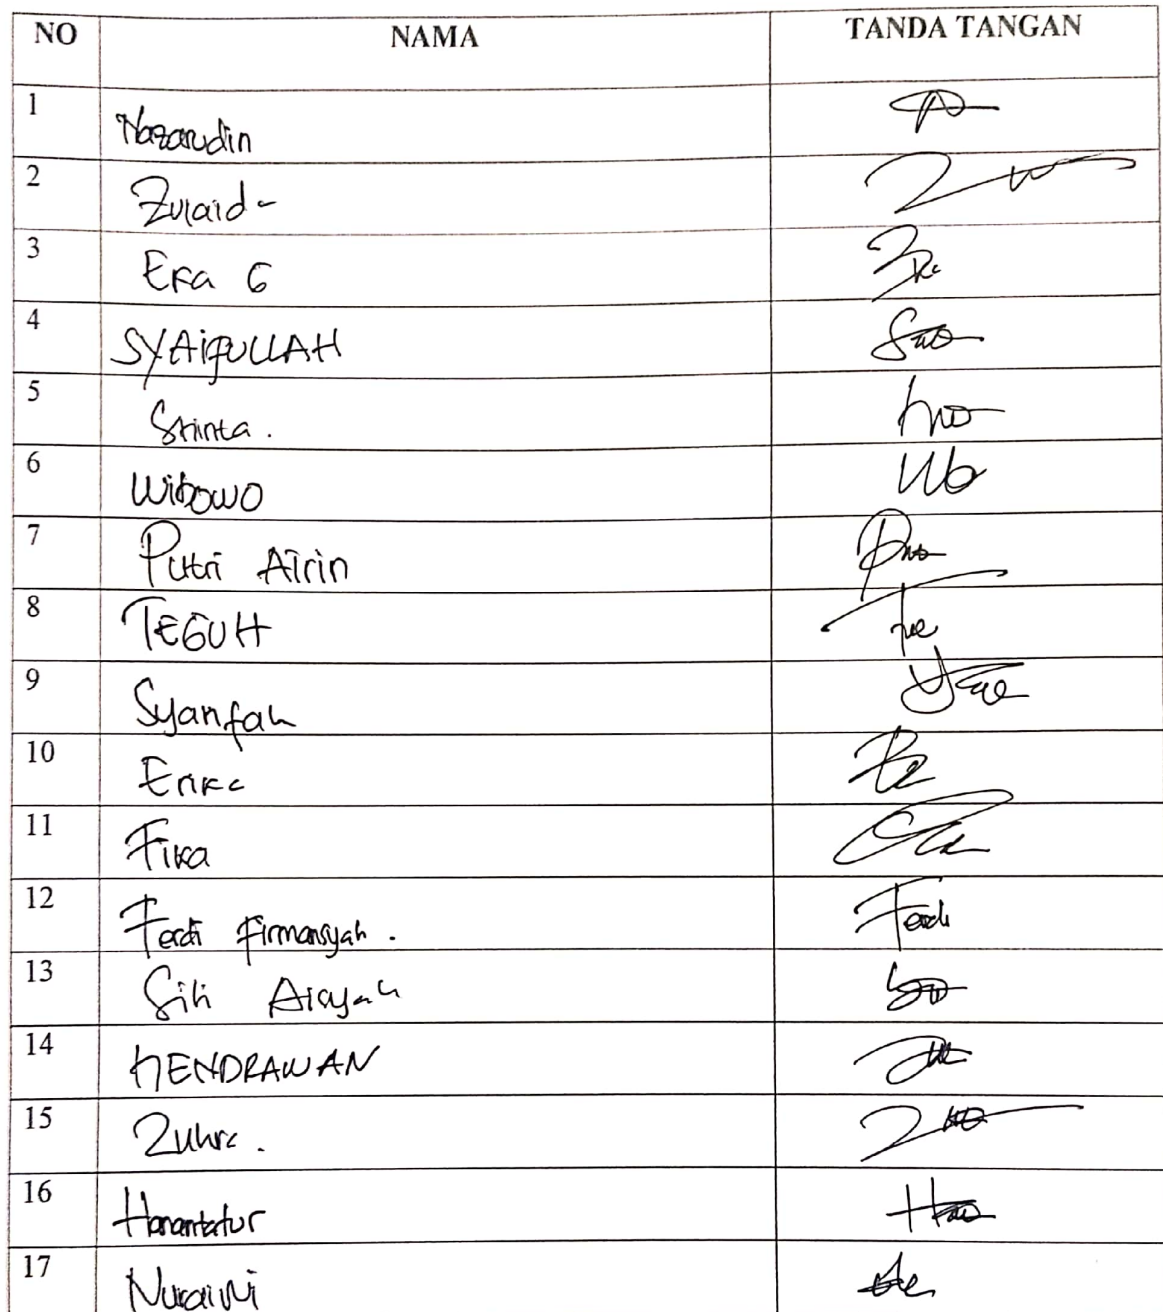 NO NAMA TANDA TANGAN
1 Nazarudin
2 Zulaida
3 Eka G
4 SYAIFULLAH
5 Shinta.
6 Wibowo
7 Putri Airin
8 TEGUH
9 Syarifah
10 Erika
11 Fika
12 Ferdi Firmansyah. Ferdi
13 Siti Aisyah
14 HENDRAWAN
15 Zuhra.
16 Hanantatur
17 Nuraini